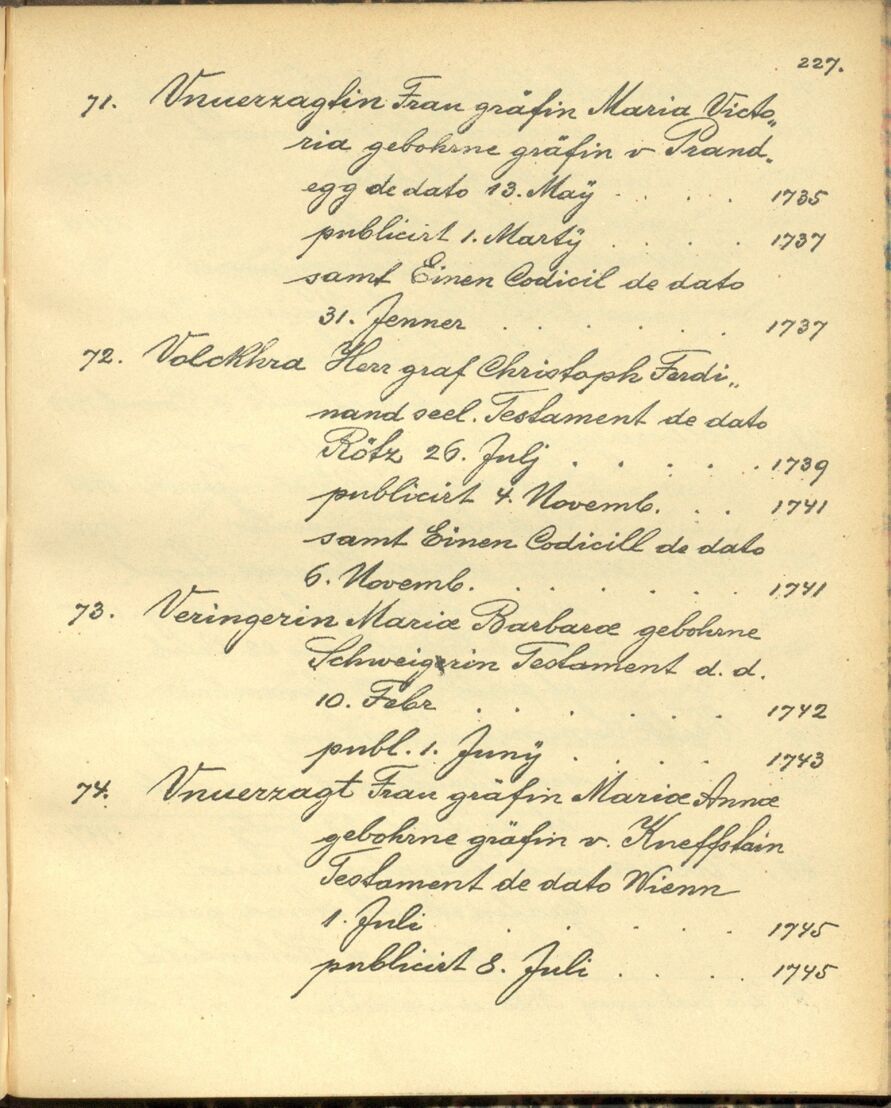 227.
71. Vnuerzagtin Frau gräfin Maria Victo„
ria gebohrne gräfin v Prand„
egg de dato 13. Maÿ . . . . 1735
publicirt 1. Martÿ . . . . 1737
samt Einen Codicil de dato
31. Jenner . . . . . . 1737
72. Volckhra Herr graf Christoph Ferdi„
nand seel. Testament de dato
Rötz 26. Julj . . . . . 1739
publicirt 4. Novemb. . . . 1741
samt Einen Codicill de dato
6. Novemb. . . . . . . 1741
73. Veringerin Mariæ Barbaræ gebohrne
Schweigerin Testament d. d.
10. Febr . . . . . . 1742
publ. 1. Junÿ . . . . 1743
74. Vnuerzagt Frau gräfin Mariæ Annæ
gebohrne gräfin v. Kneffstain
Testament de dato Wienn
1. Juli . . . . . 1745
publicirt 8. Juli . . . . 1745